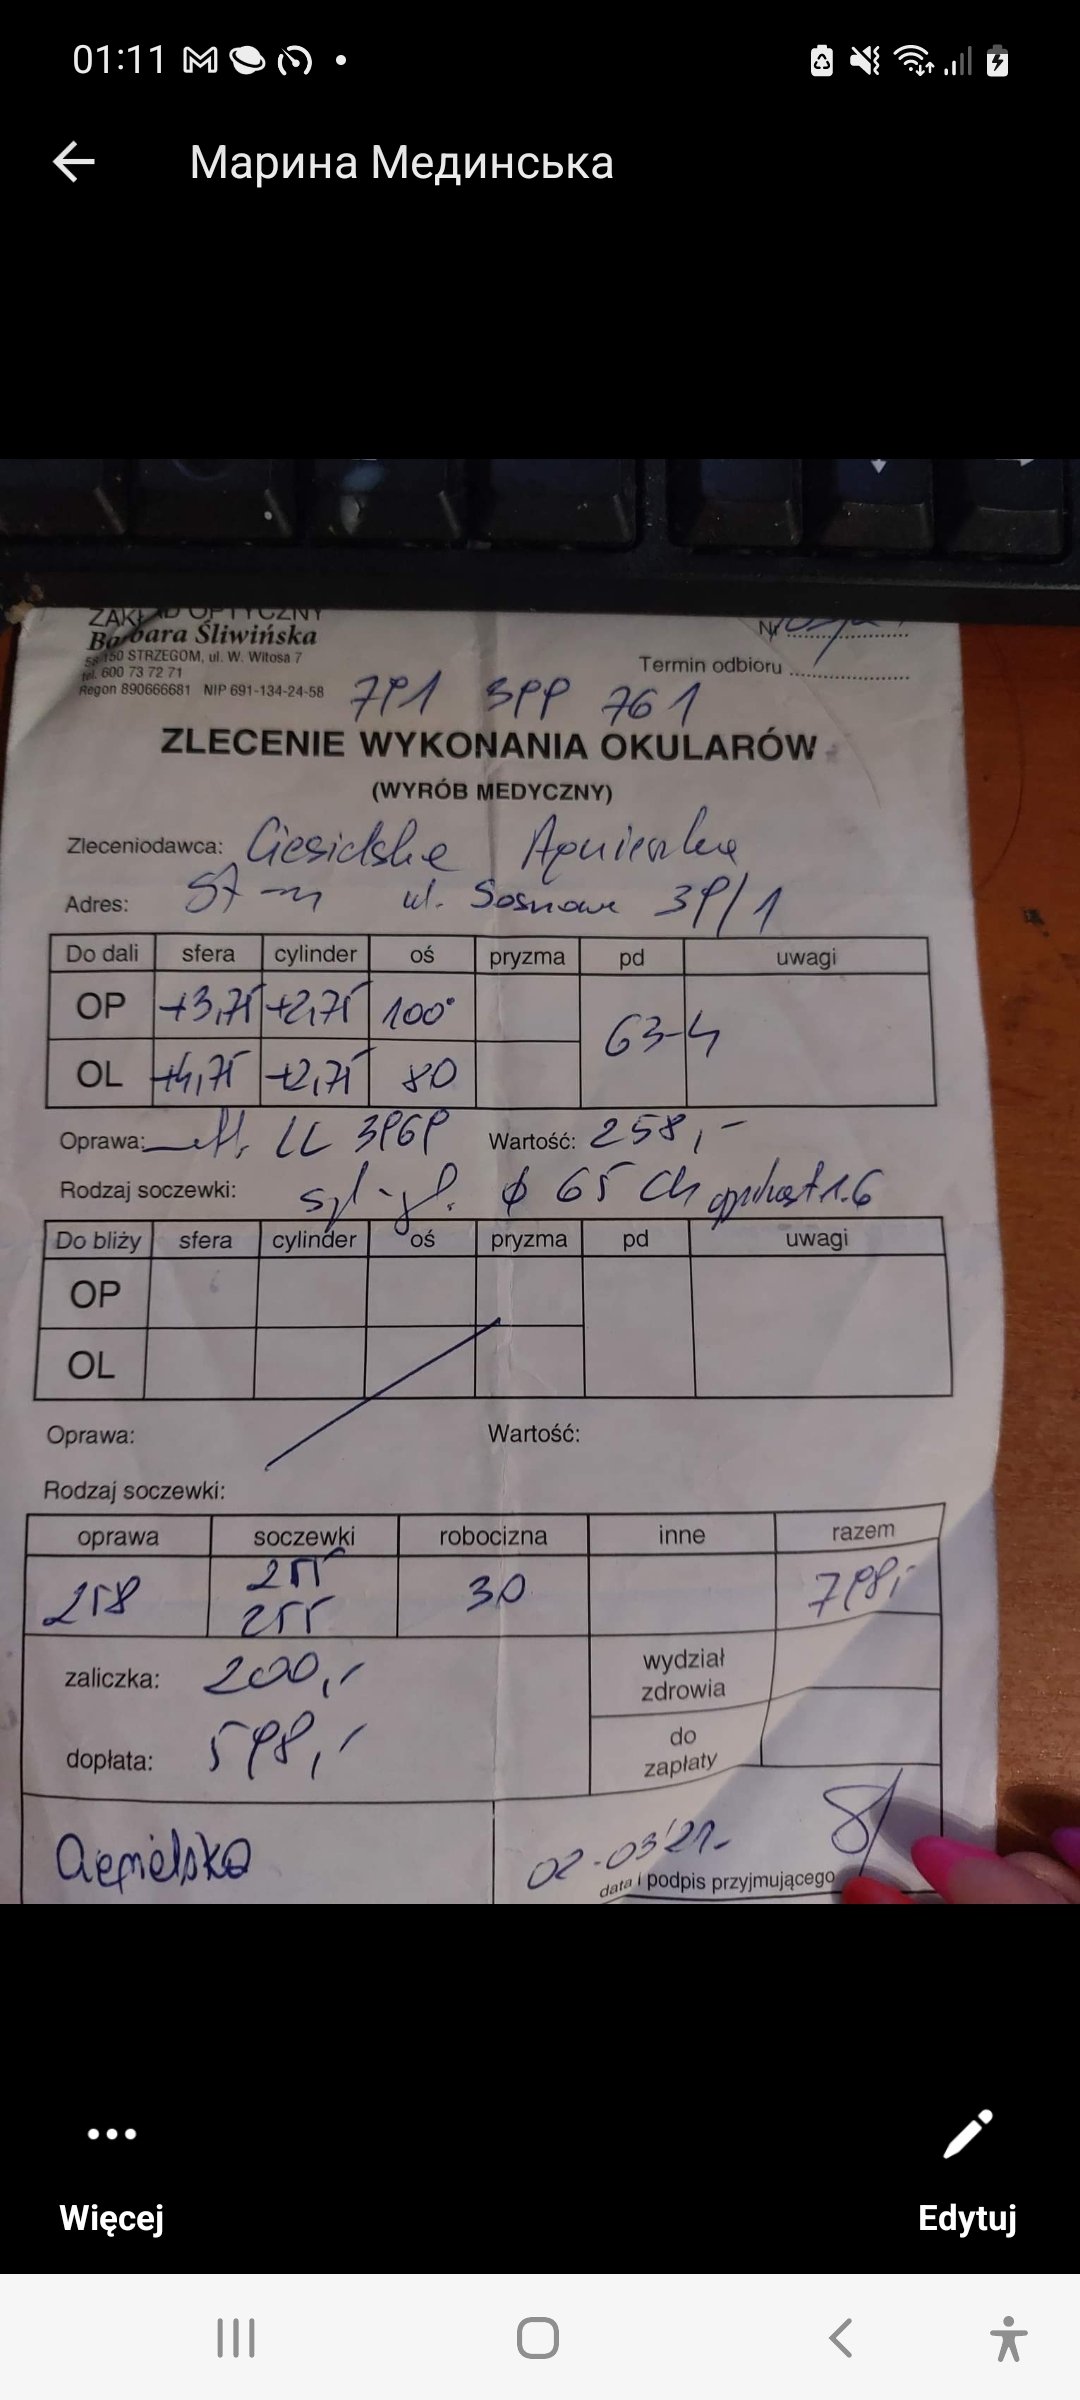 01:11
Марина Мединська
ZAKŁAD OPTYCZNY
Barbara Śliwińska
58-150 STRZEGOM, ul. W. Witosa 7
tel. 600 73 72 71
Regon 890666681 NIP 691-134-24-58
Nr
Termin odbioru
791 399 761
ZLECENIE WYKONANIA OKULARÓW
(WYRÓB MEDYCZNY)
Zleceniodawca: Agnieszka
Adres: ul. Sosnowa 39/1
Do dali sfera cylinder oś pryzma pd uwagi
OP +3,75 +2,75 100° 63-4
OL +4,75 +2,75 80
Oprawa: LL 3969 Wartość: 258,-
Rodzaj soczewki: φ 65 1.6
Do bliży sfera cylinder oś pryzma pd uwagi
OP
OL
Oprawa: Wartość:
Rodzaj soczewki:
oprawa soczewki robocizna inne razem
258 255 30 798,-
255
zaliczka: 200,- wydział zdrowia
dopłata: 598,- do zapłaty
02-03'21
data i podpis przyjmującego
Więcej Edytuj